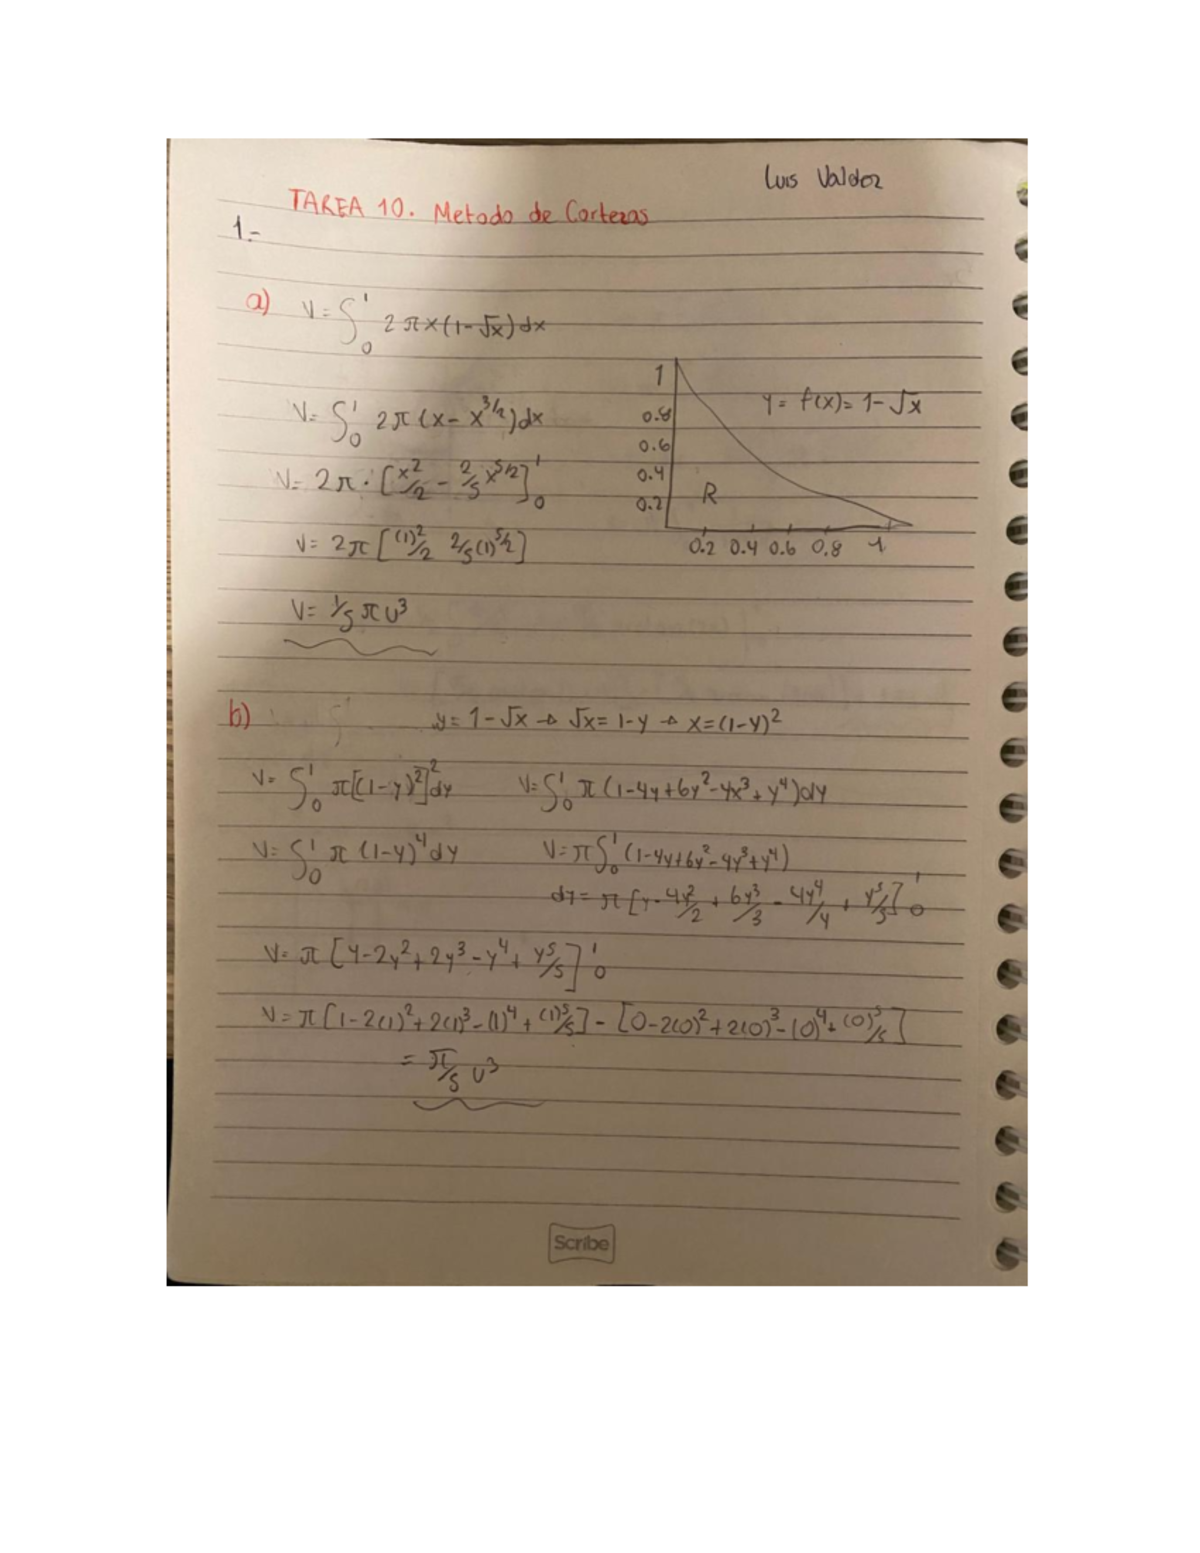 Luis Valdez
TAREA 10. Metodo de Cortezas
1.-
a) V = ∫₀¹ 2πx(1-√x)dx
V= ∫₀¹ 2π(x-x^3/2)dx
V= 2π·[x²/2 - 2/5 x^5/2]₀¹
V= 2π[(1)²/2 2/5(1)^5/2]
V= 1/5 π u³
y = f(x)= 1-√x
1
0.8
0.6
0.4
0.2
R
0.2 0.4 0.6 0.8 1
b) y= 1-√x → √x= 1-y → x=(1-y)²
V= ∫₀¹ π[(1-y)²]²dy V=∫₀¹ π(1-4y+6y²-4x³+y⁴)dy
V= ∫₀¹ π(1-y)⁴dy V=π∫₀¹(1-4y+6y²-4y³+y⁴)
dy= π[y-4y²/2 + 6y³/3 - 4y⁴/4 + y⁵/5]₀¹
V= π[y-2y²+2y³-y⁴+y⁵/5]₀¹
V= π[1-2(1)²+2(1)³-(1)⁴+(1)⁵/5] - [0-2(0)²+2(0)³-(0)⁴+(0)⁵/5]
= π/5 u³
Scribe